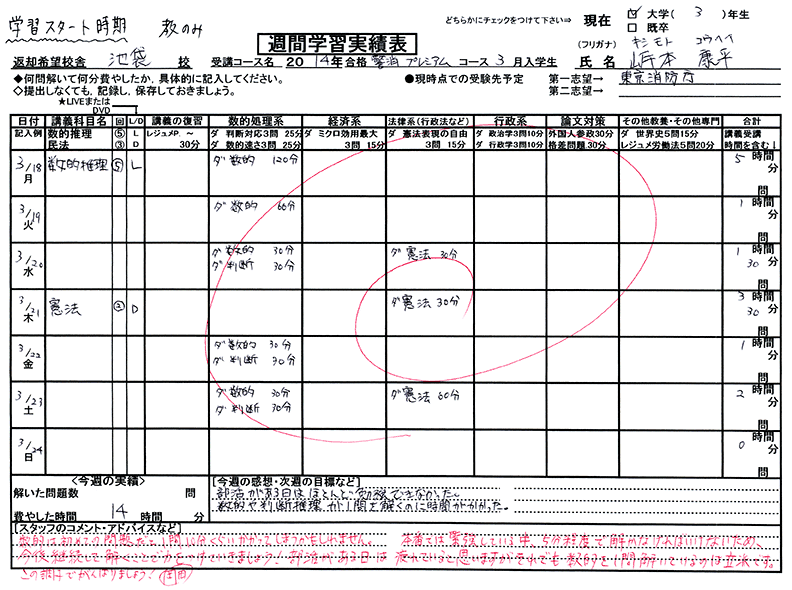 学習スタート時期 教のみ
どちらかにチェックをつけて下さい⇒ 現在 ☑ 大学( 3 )年生
□ 既卒
週間学習実績表
(フリガナ) ヤマモト コウヘイ
返却希望校舎 池袋 校 受講コース名 2014年合格 警消プレミアム コース 3月入学生 氏名 山本 康平
◆何問解いて何分費やしたか、具体的に記入してください。 ●現時点での受験先予定 第一志望→ 東京消防庁
◇提出しなくても、記録し、保存しておきましょう。 第二志望→
★LIVEまたは
DVD
日付 講義科目名 回 L/D 講義の復習 数的処理系 経済系 法律系(行政法など) 行政系 論文対策 その他教養・その他専門 合計
記入例 数的推理 ⑤ L レジュメP. ~ ダ 判断対応3問 25分 ダ ミクロ効用最大 ダ 憲法表現の自由 ダ 政治学3問10分 外国人参政30分 ダ 世界史5問15分 講義受講
民法 ③ D 30分 ダ 数的速さ3問 25分 3問 15分 3問 15分 ダ 行政学3問10分 格差問題.30分 レジュメ労働法5問20分 時間を含む↓
3/18 月 数的推理 ⑤ L ダ 数的 120分 5 時間 分 問
3/19 火 ダ 数的 60分 1 時間 分 問
3/20 水 ダ 数的 30分 ダ 憲法 30分 1 時間
ダ 判断 30分 30 分 問
3/21 木 憲法 ② D ダ 憲法 30分 3 時間 30 分 問
3/22 金 ダ 数的 30分 1 時間
ダ 判断 30分 分 問
3/23 土 ダ 数的 30分 ダ 憲法 60分 2 時間
ダ 判断 30分 分 問
3/24 日 0 時間 分 問
<今週の実績> [今週の感想・次週の目標など]
解いた問題数 問 部活がある日はほとんど勉強できなかった。
費やした時間 14 時間 分 数的や判断推理が1問を解くのに時間がかかった。
[スタッフのコメント・アドバイスなど]
数的は初めての問題だと1問10分くらいかかってしまうかもしれません。 本番では緊張している中、5分程度で解かなければいけないため、
今後継続して解くことで力をつけていきましょう! 部活がある日は疲れていると思いますがそれでも数的を1問解いているのは立派です。
この調子でがんばりましょう!